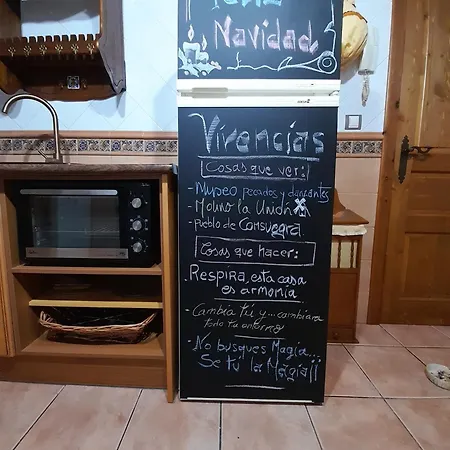 Feliz
Navidad
Vivencias
Cosas que ver:
- Museo pecados y danzantes
- Molino la Unión
- Pueblo de Consuegra
Cosas que hacer:
- Respira, esta casa
es armonia
- Cambia tú y... cambiara
todo tu entorno
- No busques Magia...
Se tu la Magia!!